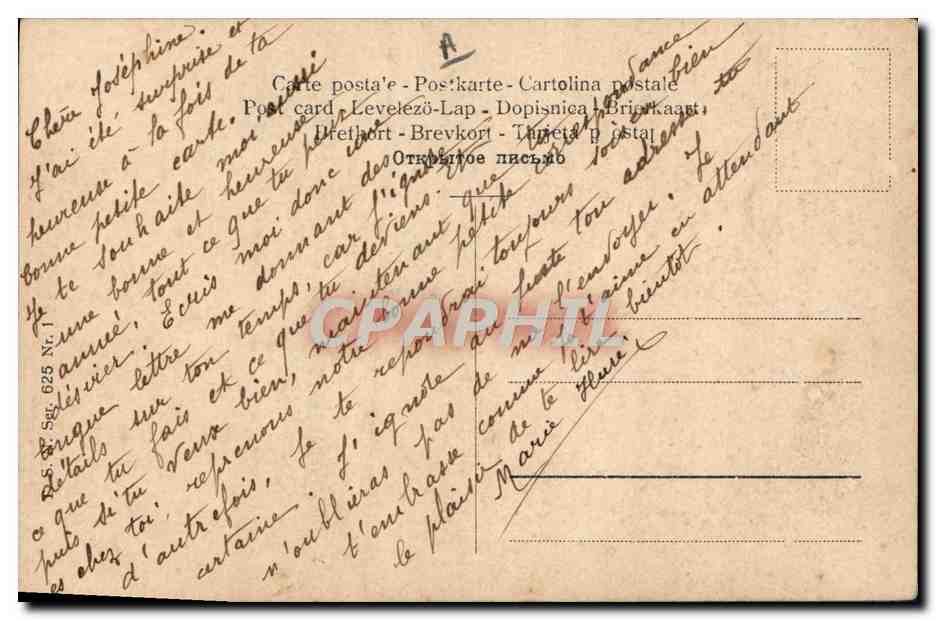 A
Carte postale - Postkarte - Cartolina postale
Post card - Levelező-Lap - Dopisnica - Brierkaart
Brefkort - Brevkort - Tarjeta postal
Открытое письмо
S. Ser. 625 Nr. 1
CPAPHIL
Chère Joséphine.
J'ai été surprise et
heureuse à la fois de ta
bonne petite carte.
Je te souhaite moi aussi
une bonne et heureuse
année, tout ce que tu peux
désirer. Ecris moi donc une
longue lettre me donnant des
détails sur ton temps, car j'ignore
ce que tu fais et ce que tu deviens. Et
puis si tu veux bien, maintenant que tu
es chez toi, reprenons notre bonne petite correspondance
d'autrefois. Je te répondrai toujours sois en bien
certaine. J'ignore au juste ton adresse
n'oublieras pas de me l'envoyer. Je
t'embrasse comme je t'aime en attendant
le plaisir de te lire bientôt.
Marie